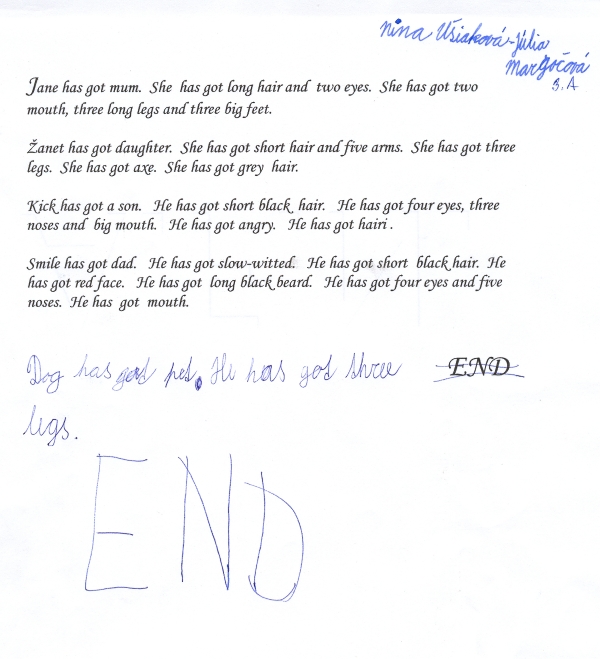 Nina Ušiaková - Júlia
Margočová
3.A
Jane has got mum. She has got long hair and two eyes. She has got two
mouth, three long legs and three big feet.
Žanet has got daughter. She has got short hair and five arms. She has got three
legs. She has got axe. She has got grey hair.
Kick has got a son. He has got short black hair. He has got four eyes, three
noses and big mouth. He has got angry. He has got hairi.
Smile has got dad. He has got slow-witted. He has got short black hair. He
has got red face. He has got long black beard. He has got four eyes and five
noses. He has got mouth.
Dog has got pet. He has got three
END
legs.
END